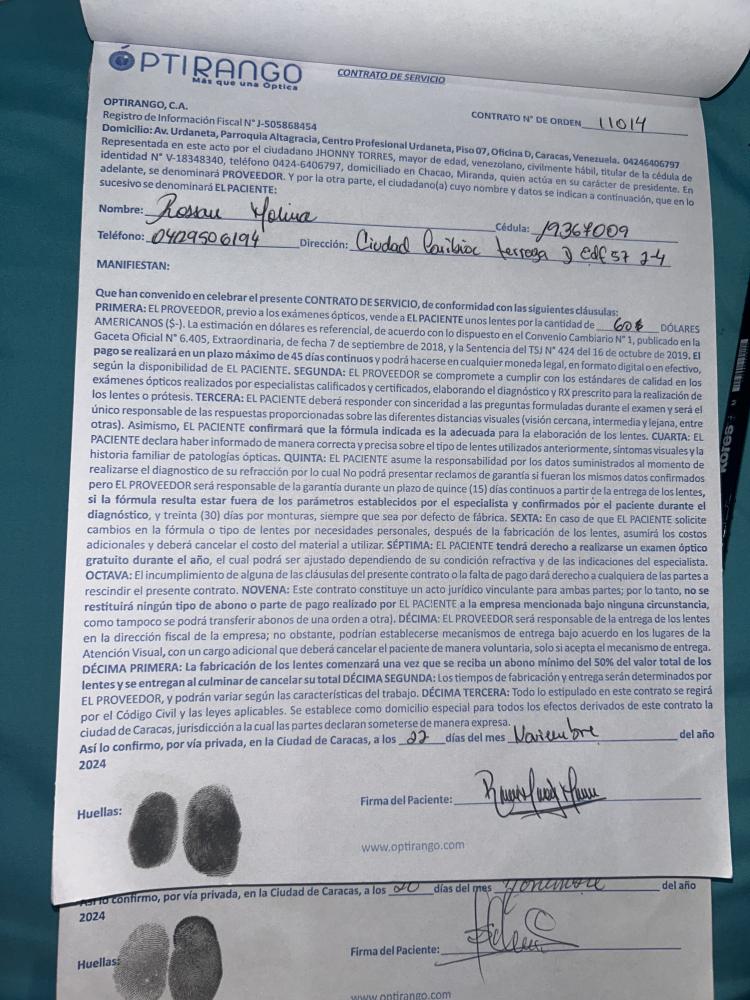 ÓPTIRANGO
Más que una Óptica
CONTRATO DE SERVICIO
OPTIRANGO, C.A.
CONTRATO N° DE ORDEN 11014
Registro de Información Fiscal N° J-505868454
Domicilio: Av. Urdaneta, Parroquia Altagracia, Centro Profesional Urdaneta, Piso 07, Oficina D, Caracas, Venezuela. 04246406797
Representada en este acto por el ciudadano JHONNY TORRES, mayor de edad, venezolano, civilmente hábil, titular de la cédula de
identidad N° V-18348340, teléfono 0424-6406797, domiciliado en Chacao, Miranda, quien actúa en su carácter de presidente. En
adelante, se denominará PROVEEDOR. Y por la otra parte, el ciudadano(a) cuyo nombre y datos se indican a continuación, que en lo
sucesivo se denominará EL PACIENTE:
Nombre: Rossau Molina Cédula: 19367009
Teléfono: 0429506194 Dirección: Ciudad terreza D edf 57 2-4
MANIFIESTAN:
Que han convenido en celebrar el presente CONTRATO DE SERVICIO, de conformidad con las siguientes cláusulas:
PRIMERA: EL PROVEEDOR, previo a los exámenes ópticos, vende a EL PACIENTE unos lentes por la cantidad de 60$ DÓLARES
AMERICANOS ($-). La estimación en dólares es referencial, de acuerdo con lo dispuesto en el Convenio Cambiario N° 1, publicado en la
Gaceta Oficial N° 6.405, Extraordinaria, de fecha 7 de septiembre de 2018, y la Sentencia del TSJ N° 424 del 16 de octubre de 2019. El
pago se realizará en un plazo máximo de 45 días continuos y podrá hacerse en cualquier moneda legal, en formato digital o en efectivo,
según la disponibilidad de EL PACIENTE. SEGUNDA: EL PROVEEDOR se compromete a cumplir con los estándares de calidad en los
exámenes ópticos realizados por especialistas calificados y certificados, elaborando el diagnóstico y RX prescrito para la realización de
los lentes o prótesis. TERCERA: EL PACIENTE deberá responder con sinceridad a las preguntas formuladas durante el examen y será el
único responsable de las respuestas proporcionadas sobre las diferentes distancias visuales (visión cercana, intermedia y lejana, entre
otras). Asimismo, EL PACIENTE confirmará que la fórmula indicada es la adecuada para la elaboración de los lentes. CUARTA: EL
PACIENTE declara haber informado de manera correcta y precisa sobre el tipo de lentes utilizados anteriormente, síntomas visuales y la
historia familiar de patologías ópticas. QUINTA: EL PACIENTE asume la responsabilidad por los datos suministrados al momento de
realizarse el diagnostico de su refracción por lo cual No podrá presentar reclamos de garantía si fueran los mismos datos confirmados
pero EL PROVEEDOR será responsable de la garantía durante un plazo de quince (15) días continuos a partir de la entrega de los lentes,
si la fórmula resulta estar fuera de los parámetros establecidos por el especialista y confirmados por el paciente durante el
diagnóstico, y treinta (30) días por monturas, siempre que sea por defecto de fábrica. SEXTA: En caso de que EL PACIENTE solicite
cambios en la fórmula o tipo de lentes por necesidades personales, después de la fabricación de los lentes, asumirá los costos
adicionales y deberá cancelar el costo del material a utilizar. SÉPTIMA: EL PACIENTE tendrá derecho a realizarse un examen óptico
gratuito durante el año, el cual podrá ser ajustado dependiendo de su condición refractiva y de las indicaciones del especialista.
OCTAVA: El incumplimiento de alguna de las cláusulas del presente contrato o la falta de pago dará derecho a cualquiera de las partes a
rescindir el presente contrato. NOVENA: Este contrato constituye un acto jurídico vinculante para ambas partes; por lo tanto, no se
restituirá ningún tipo de abono o parte de pago realizado por EL PACIENTE a la empresa mencionada bajo ninguna circunstancia,
como tampoco se podrá transferir abonos de una orden a otra). DÉCIMA: EL PROVEEDOR será responsable de la entrega de los lentes
en la dirección fiscal de la empresa; no obstante, podrían establecerse mecanismos de entrega bajo acuerdo en los lugares de la
Atención Visual, con un cargo adicional que deberá cancelar el paciente de manera voluntaria, solo si acepta el mecanismo de entrega.
DÉCIMA PRIMERA: La fabricación de los lentes comenzará una vez que se reciba un abono mínimo del 50% del valor total de los
lentes y se entregan al culminar de cancelar su total DÉCIMA SEGUNDA: Los tiempos de fabricación y entrega serán determinados por
EL PROVEEDOR, y podrán variar según las características del trabajo. DÉCIMA TERCERA: Todo lo estipulado en este contrato se regirá
por el Código Civil y las leyes aplicables. Se establece como domicilio especial para todos los efectos derivados de este contrato la
ciudad de Caracas, jurisdicción a la cual las partes declaran someterse de manera expresa.
Así lo confirmo, por vía privada, en la Ciudad de Caracas, a los 22 días del mes Noviembre del año
2024
Huellas:
Firma del Paciente:
www.optirango.com
Así lo confirmo, por vía privada, en la Ciudad de Caracas, a los 20 días del mes del año
2024
Huellas:
Firma del Paciente:
www.optirango.com
Kores